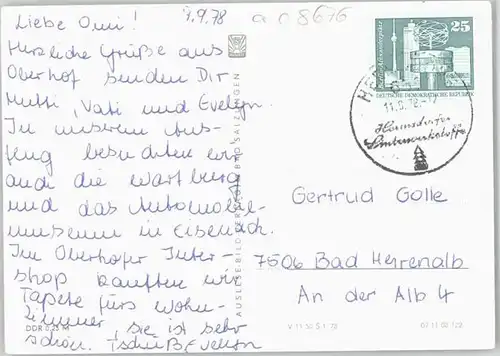 Liebe Omi! 9.9.78
a 08676
Herzliche Grüße aus
Oberhof senden Dir
Mutti, Vati und Evelyn.
In unserem Aus-
flug besuchten wir
auch die Wartburg
und das Automobil-
museum in Eisenach.
Im Oberhofer Inter-
shop kauften wir
Tapete fürs Wohn-
zimmer, sie ist sehr
schön. Tschüß Evelyn
DDR 0,25 M
AUSLESE-BILD-VERLAG BAD SALZUNGEN
25
DEUTSCHE DEMOKRATISCHE REPUBLIK
Hermsdorfer
Sinterwerkstoffe
Gertrud Golle
7506 Bad Herrenalb
An der Alb 4
V 11 50 S 1/78
07 11 02 122